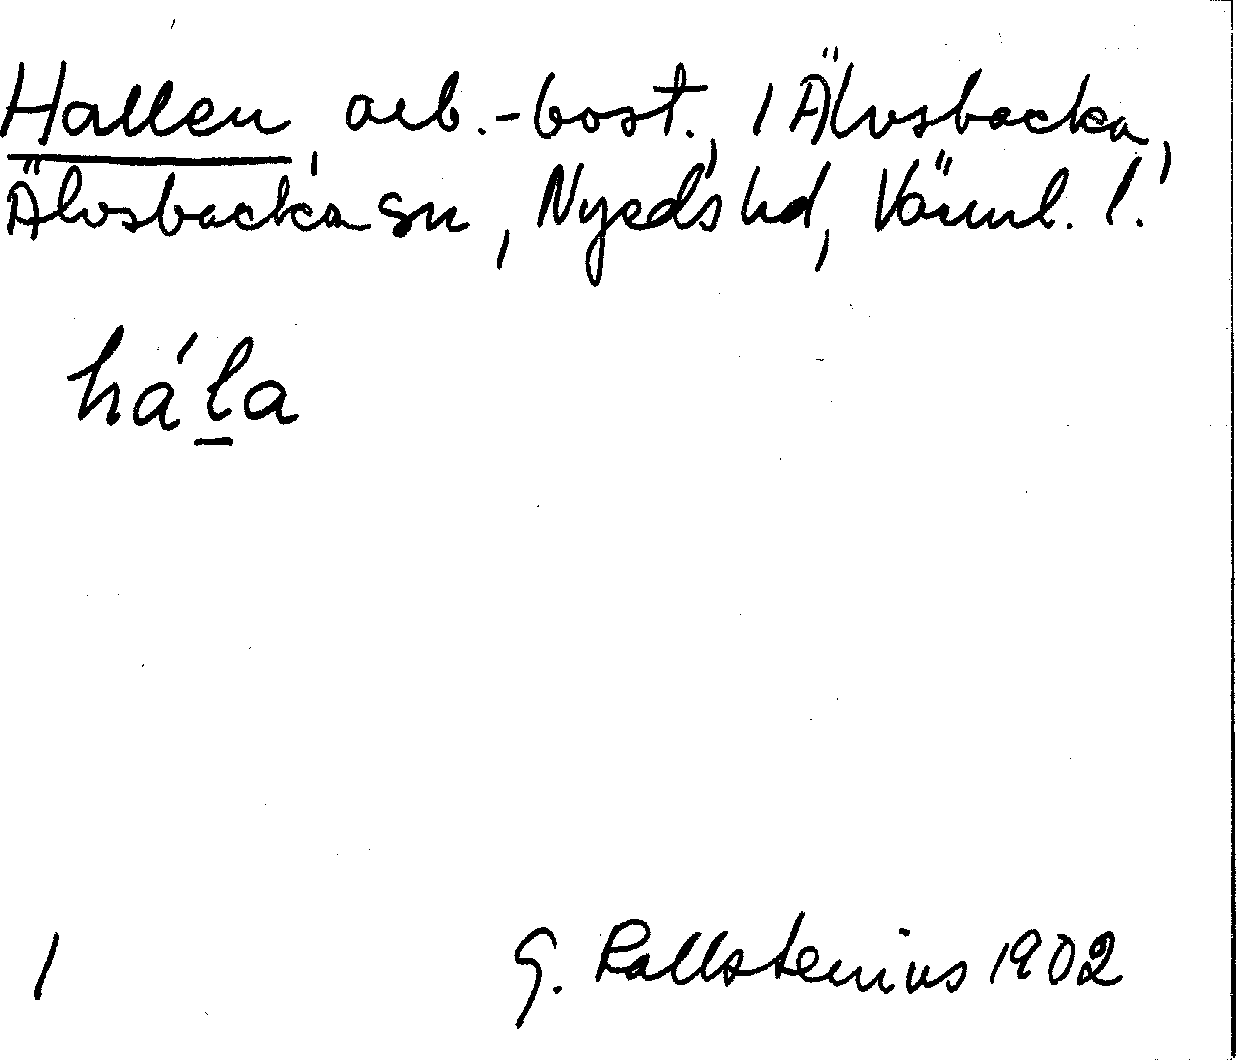 Hallen, arb.-bost., 1 Älvsbacka,
Älvsbacka sn, Nyeds hd, Värml. l.
há´l̠a
1 G. Kallstenius 1902